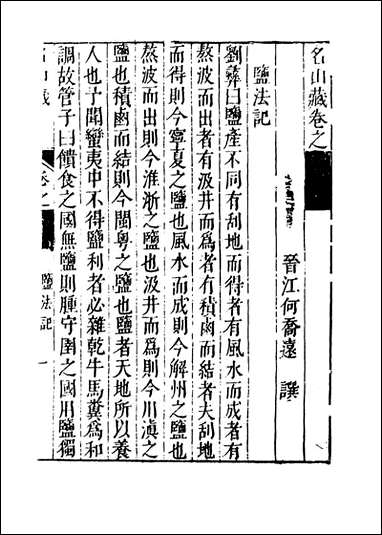 名山藏卷之
晉江何喬遠 譔
鹽法記
劉彝曰鹽產不同有刮地而得者有風水而成者有
熬波而出者有汲井而爲者有積鹵而結者夫刮地
而得則今寧夏之鹽也風水而成則今解州之鹽也
熬波而出則今淮浙之鹽也汲井而爲則今川滇之
鹽也積鹵而結則今閩粵之鹽也鹽者天地所以養
人也予聞蠻夷中不得鹽利者必雜乾牛馬糞爲和
調故管子曰饋食之國無鹽則腫守圉之國用鹽獨
名山藏 卷之 鹽法記 一